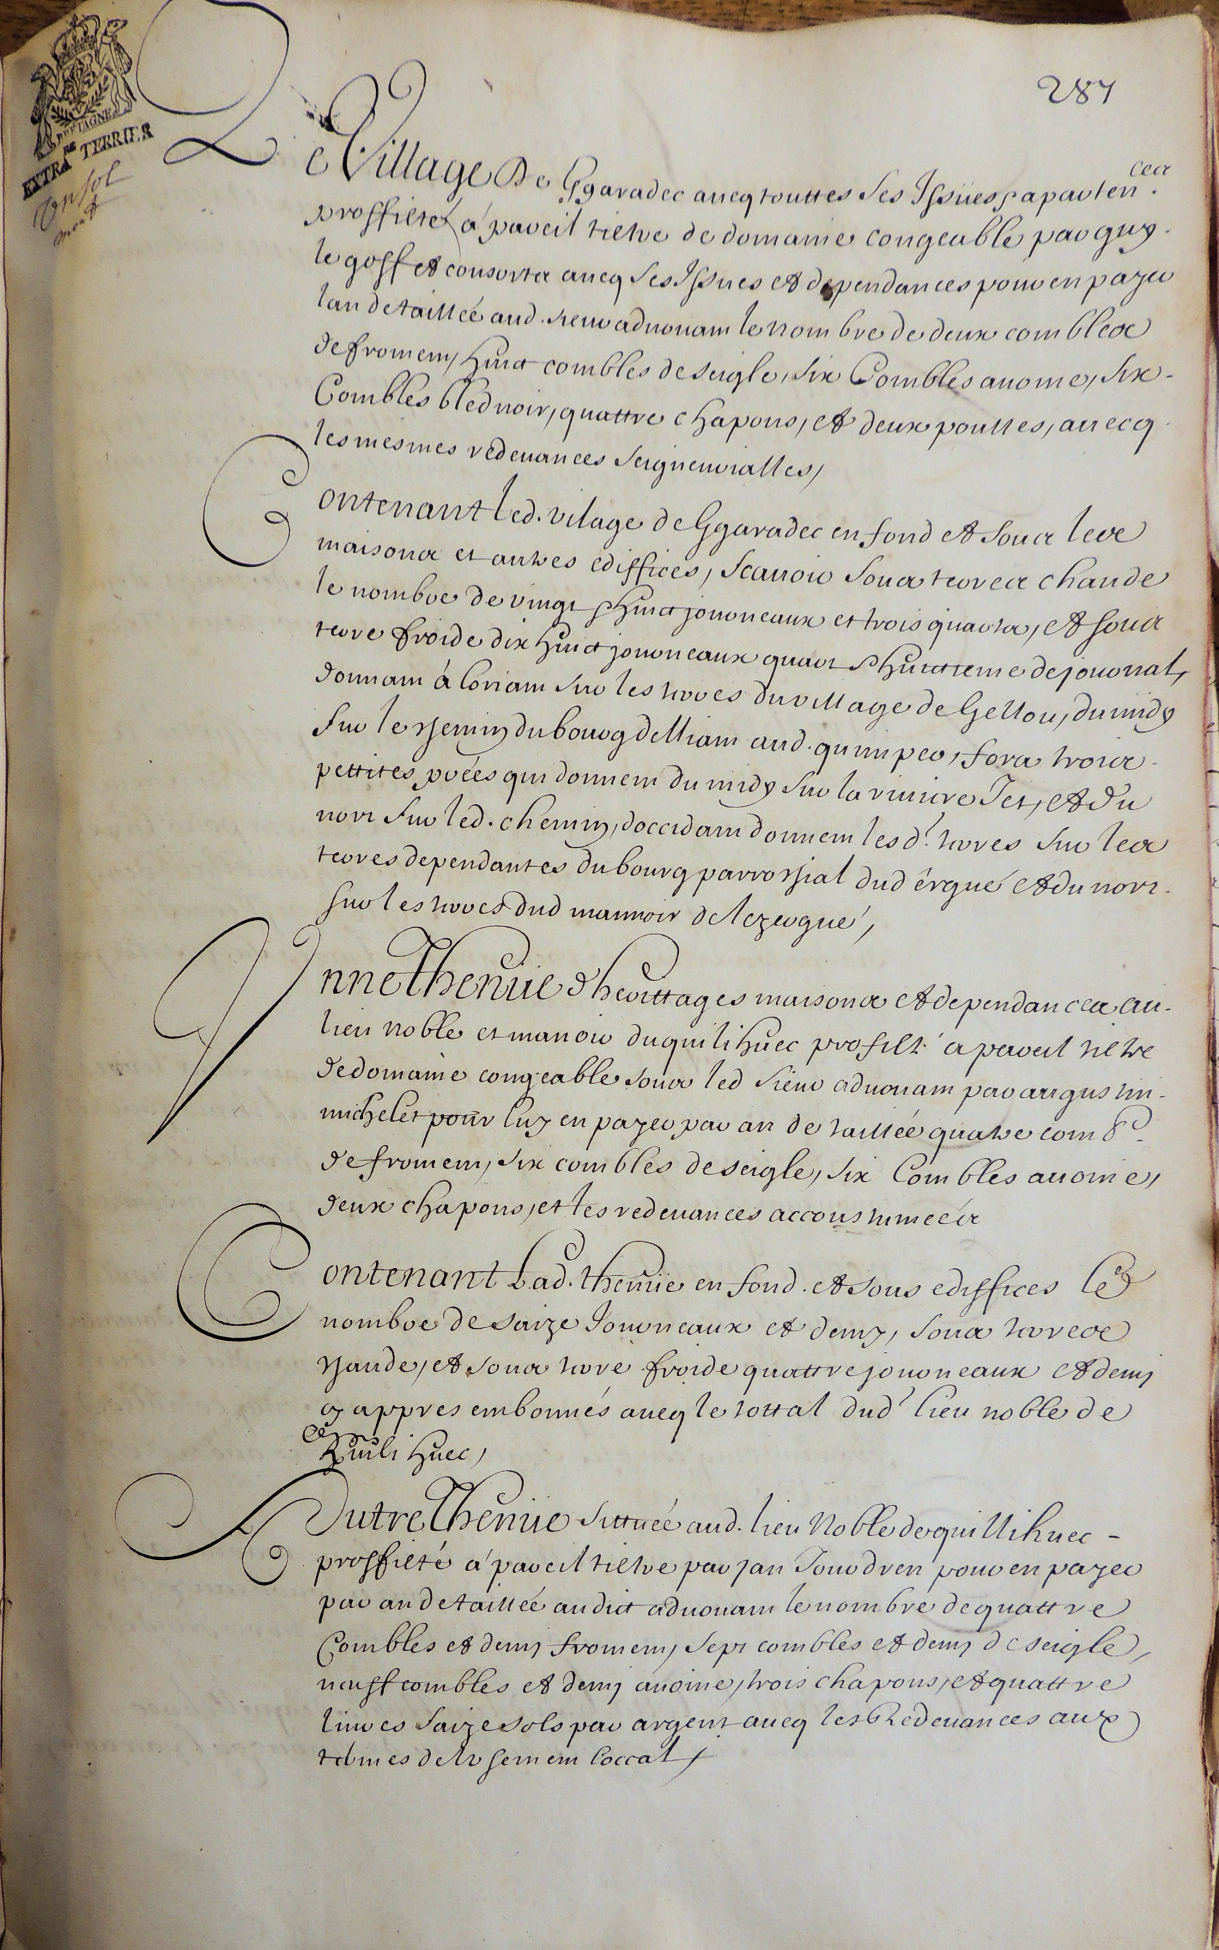 287
BRETAGNE
EXTRA RE TERRIER
Le Village De Kgaradec avecq touttes ses Issües, apartences
proffitté à pareil tiltre de domaine congeable par guy
le goff et consorts avecq ses Issues et dependances pour en payer
lan de taillée aud. sieur advouant le nombre de deux combles
de froment, huict combles de seigle, six Combles avoine, six
Combles bled noir, quattre chapons, et deux poulles, avecq
les mesmes redevances seigneurialles,
Contenant led. vilage de Kgaradec en fond et sous les
maisons et autres ediffices, scavoir sous terres chaude
le nombre de vingt huict journeaux et trois quarts, et sous
terre froide dix huict journeaux quart huictieme de journal,
donnant à loriant sur les terres du village de Kellou, du midy
sur le chemin du bourg delliant aud. quimper, fors trois
pettites prées qui donnent du midy sur la riviere Jet, et du
nort sur led. chemin, doccidant donnent lesd. terres sur les
terres dependantes du bourg parrochial dud érgué et du nort
sur les terres dud mannoir de lezergué,
Vnne Thenüe dheritages maisons et dependances au
lieu noble et manoir du quilihuec profité a pareil tiltre
de domaine congeable sous led sieur advouant par augustin
michelet pour luy en payer par an de taillée quatre comb.
de froment, six combles de seigle, six Combles avoine,
deux chapons, et les redevances accoustumeés
Contenant Lad. thenüe en fond. et sous ediffices le
nombre de saize Journeaux et demy, sous terres
chaude, et sous terre froide quattre journeaux et demy
cy appres embonnés avecq le tottal dud lieu noble de
Quili huec,
Autre Thenüe sittuée aud. lieu Noble de quillihuec -
proffité à pareil tiltre par jan Jourdren pour en payer
par an de taillée audict advouant le nombre de quattre
Combles et demy froment, sept combles et demy de seigle,
neuff combles et demy avoine, trois chapons, et quattre
livres saize sols par argent avecq les Redevances aux
termes de lusement loccal,